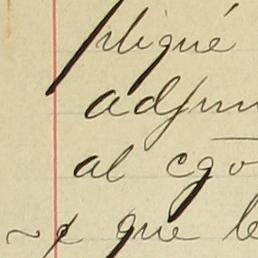 pliqué
adjun
al cgo
que le